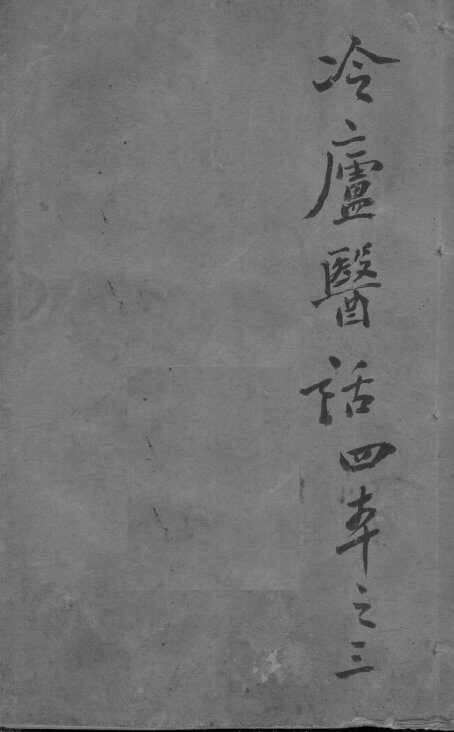 冷廬醫話四本之三